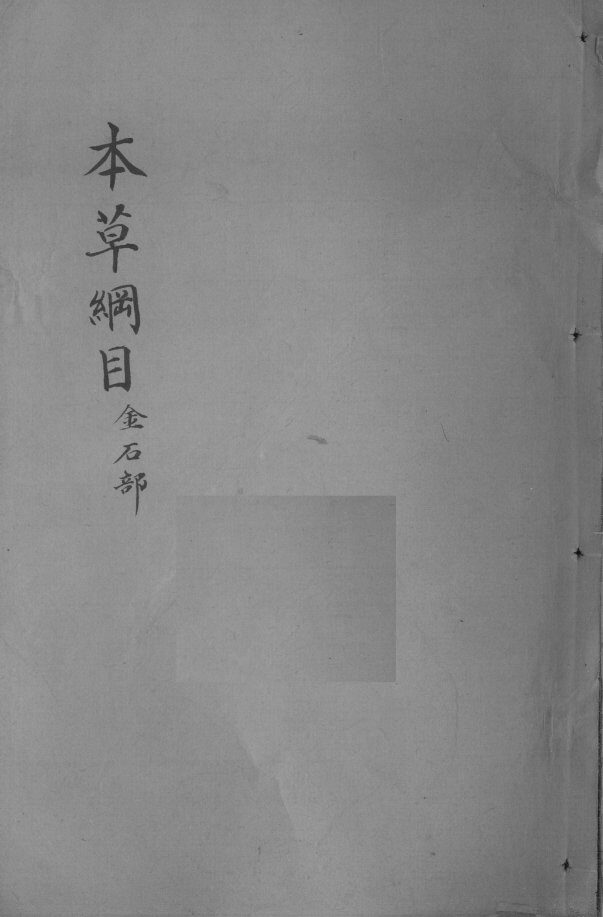 本草綱目
金石部